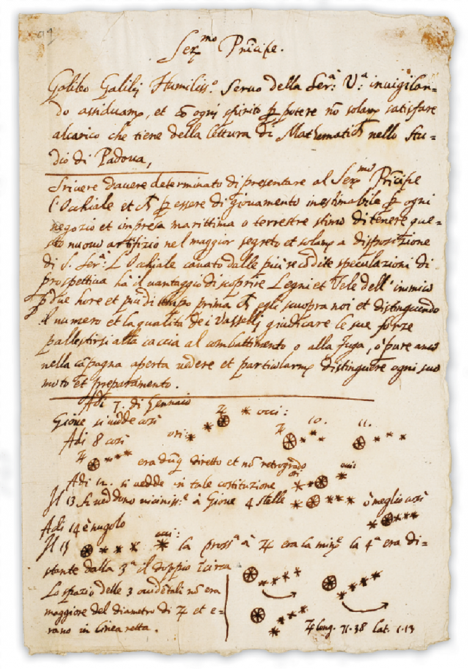 Ser.mo Principe.
Galileo Galilei Humiliss.o Servo della Ser.a V.a invigilan-
do assiduamte, et cõ ogni spirito ꝑ potere nõ solam satisfare
al carico che tiene della lettura di Mathematicħ nello Stu-
dio di Padova,
Scrivere d'avere determinato di presentare al Ser.mo Prĩcipe
l'Occhiale et ꝑ essere di giovamento inestimabile ꝑ ogni
negozio et impresa marittima o terrestre stimo di tenere que-
sto nuovo artifizio nel maggior segreto et solam a disposizione
di S. Ser.a L'Occhiale cavato dalle più recõdite speculazioni di
prospettiva ha il vantaggio di scoprire Legni et Vele dell'inimico
ꝑ due hore et più di tempo prima cħ egli scuopra noi et distinguendo
il numero et la qualità de i Vasselli giudicare le sue forze
pallestirsi alla caccia al combattimento o alla fuga, o pure anco
nella cãpagna aperta vedere et particolarm distinguere ogni suo
moto et preparamento.
Adi 7. di Gennaio
Giove si vedde così ♃ * * occi:
Adi 8 così ori: * * * ♃ 10. 11.
♃ * * * era dũq diretto et nõ retrogrado
Adi 12. si vedde in tale costituzione occi
Il 13 si veddono vicinissime a Giove 4 stelle o meglio così
Adi 14 è nugolo
Il 15 occi: la pross.a a ♃ era la min.e la 4.a era di-
stante dalla 3.a il doppio ĩcirca
Lo spazio delle 3 occidẽtali nõ era
maggiore del diametro di ♃ et e-
rano in linea retta.
♃ long. 71.38 lat. 1.13